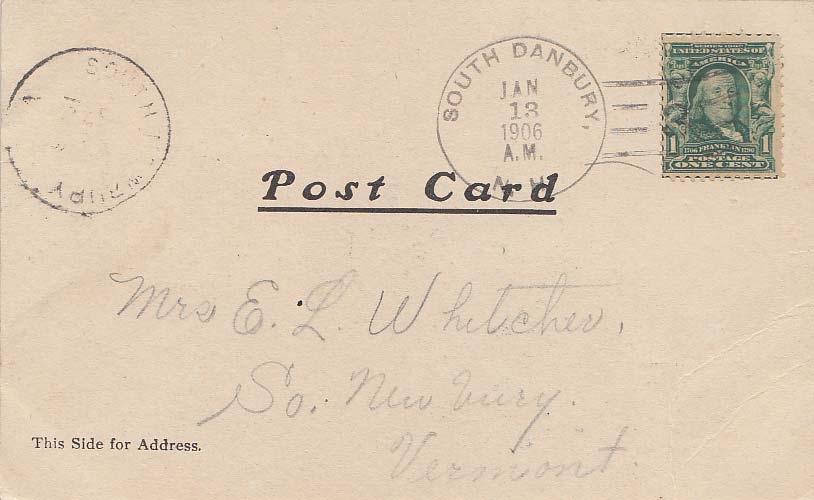 SOUTH
SOUTH DANBURY,
JAN
13
1906
A.M.
N.H.
SERIES 1902
UNITED STATES OF
AMERICA
1 1706 FRANKLIN 1790 1
POSTAGE
ONE CENT
Post Card
Mrs E. L. Whitcher,
So. Newbury.
Vermont.
This Side for Address.